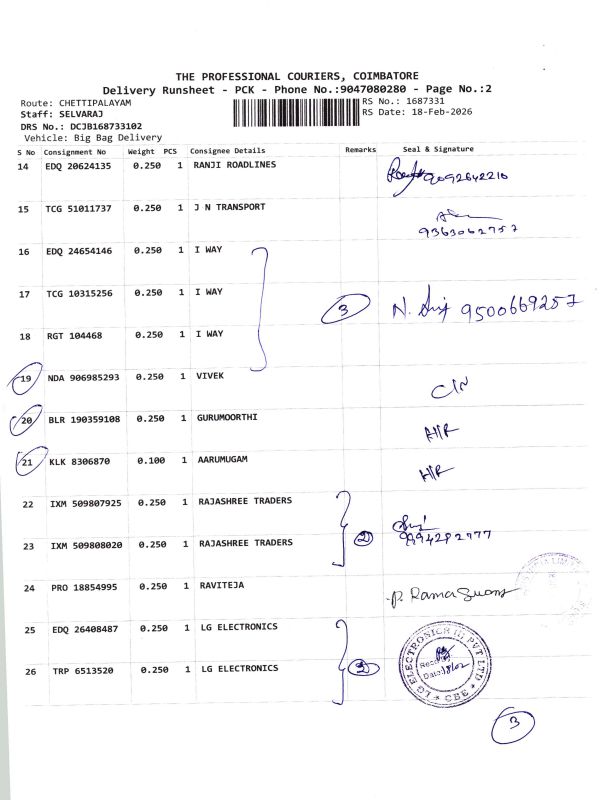 THE PROFESSIONAL COURIERS, COIMBATORE
Delivery Runsheet - PCK - Phone No.:9047080280 - Page No.:2
Route: CHETTIPALAYAM RS No.: 1687331
Staff: SELVARAJ RS Date: 18-Feb-2026
DRS No.: DCJB168733102
Vehicle: Big Bag Delivery
S No Consignment No Weight PCS Consignee Details Remarks Seal & Signature
14 EDQ 20624135 0.250 1 RANJI ROADLINES 9092642210
15 TCG 51011737 0.250 1 J N TRANSPORT
9363062757
16 EDQ 24654146 0.250 1 I WAY
17 TCG 10315256 0.250 1 I WAY 3 N. 9500669257
18 RGT 104468 0.250 1 I WAY
19 NDA 906985293 0.250 1 VIVEK C/N
20 BLR 190359108 0.250 1 GURUMOORTHI A/R
21 KLK 8306870 0.100 1 AARUMUGAM A/R
22 IXM 509807925 0.250 1 RAJASHREE TRADERS
23 IXM 509808020 0.250 1 RAJASHREE TRADERS 2 9994292777
24 PRO 18854995 0.250 1 RAVITEJA P. Ramasuam
25 EDQ 26408487 0.250 1 LG ELECTRONICS
26 TRP 6513520 0.250 1 LG ELECTRONICS 2
LG ELECTRONICS (I) PVT LTD
Date: 18/02
CBE
3